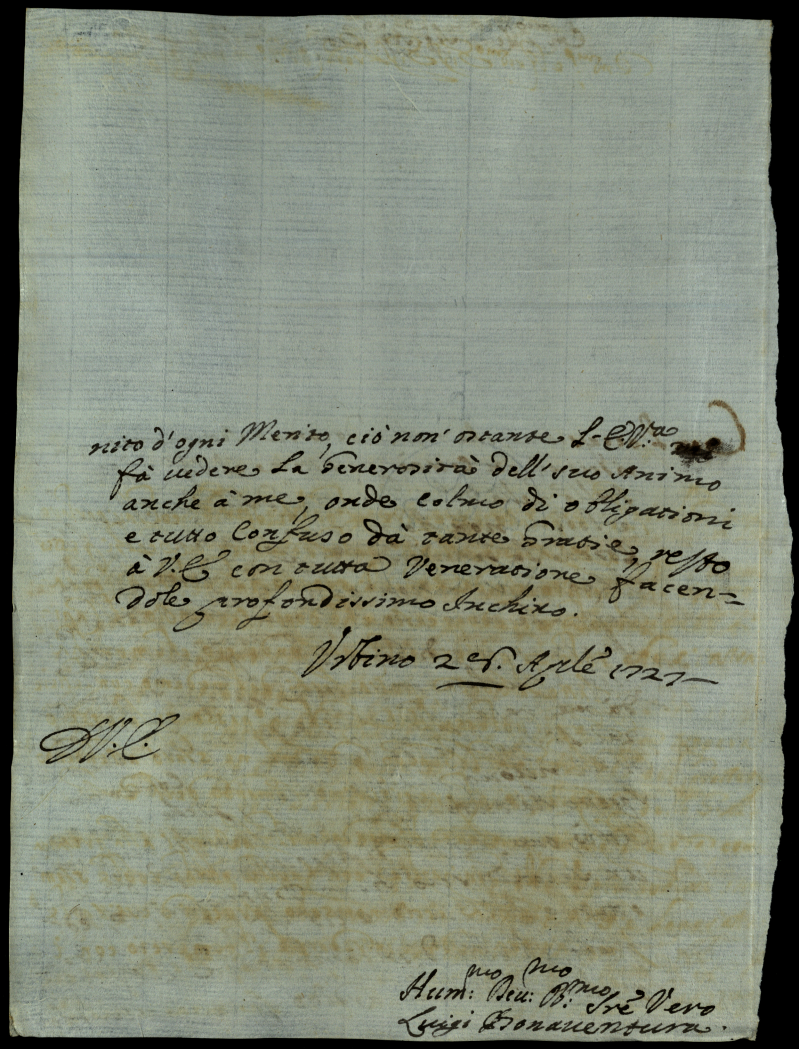 nito d'ogni Merito, ciò non' ostante L'E. V.ra
fà uedere la Generosità dell' suo Animo
anche à me, onde Colmo di obligationi
e tutto Confuso dà tante Gratie, resto
à V. E. con tutta Veneratione facen=
dole profondissimo Inchino.
Vrbino Aple 1727
D. V. E.
Hum:mo Deu:mo Sre Vero
Luigi Bonauentura.